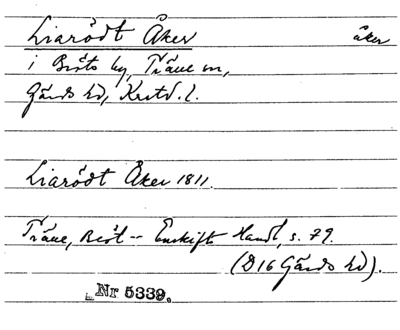 Liarödt Åker åker
i Bösts by, Träne sn,
Gärds hd, Krstd. l.
Liarödt Åker 1811.
Träne, Böst -- Enskift Handl, s. 79.
(D16 Gärds hd).
Nr 5339.